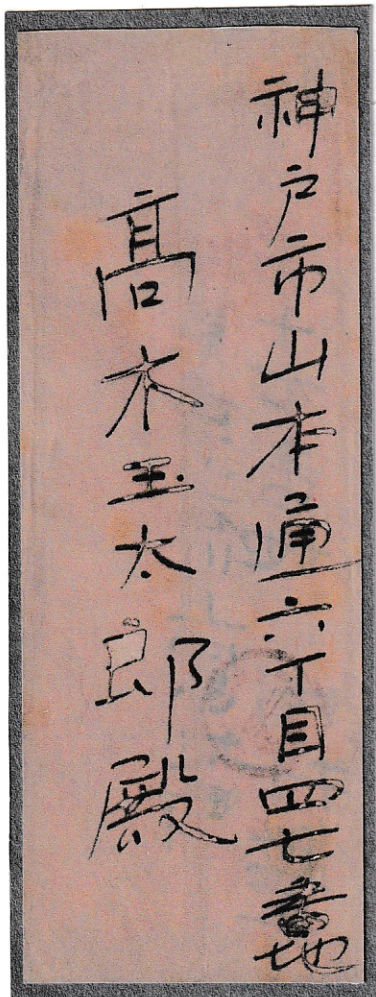 神戸市山本通六丁目四七番地
髙木玉太郎殿